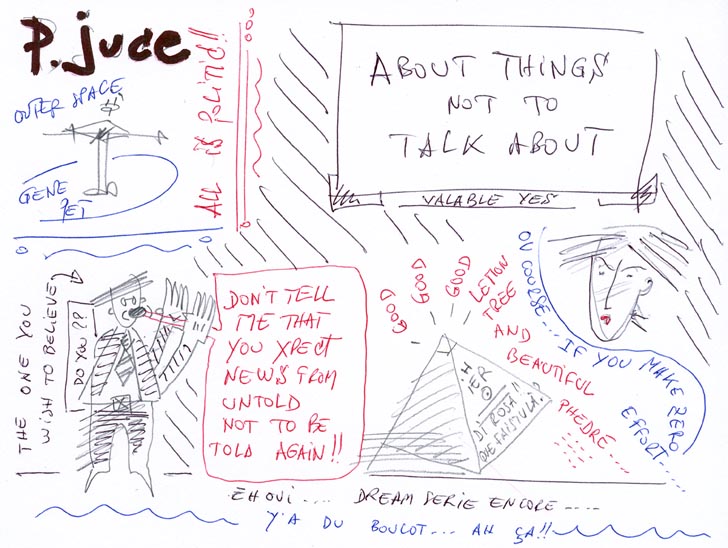 P. juDe
OUTER SPACE
GENE
JET
ALL iS PoLiTiC!!
ABOUT THINGS
NOT TO
TALK ABOUT
VALABLE YES
THE ONE YOU
WISH TO BELIEVE,
DO YOU??
DON'T TELL
ME THAT
YOU XPECT
NEWS FROM
UNTOLD
NOT TO BE
TOLD AGAIN!!
GOOD
GOOD
GOOD
LEMON
TREE
AND
BEAUTIFUL
PHEDRE....
DI ROSA!!
OV COURSE... IF YOU MAKE ZERO
EFFORT....
EH OUI .... DREAM SERIE ENCORE ....
Y'A DU BOULOT... AH ÇA!!